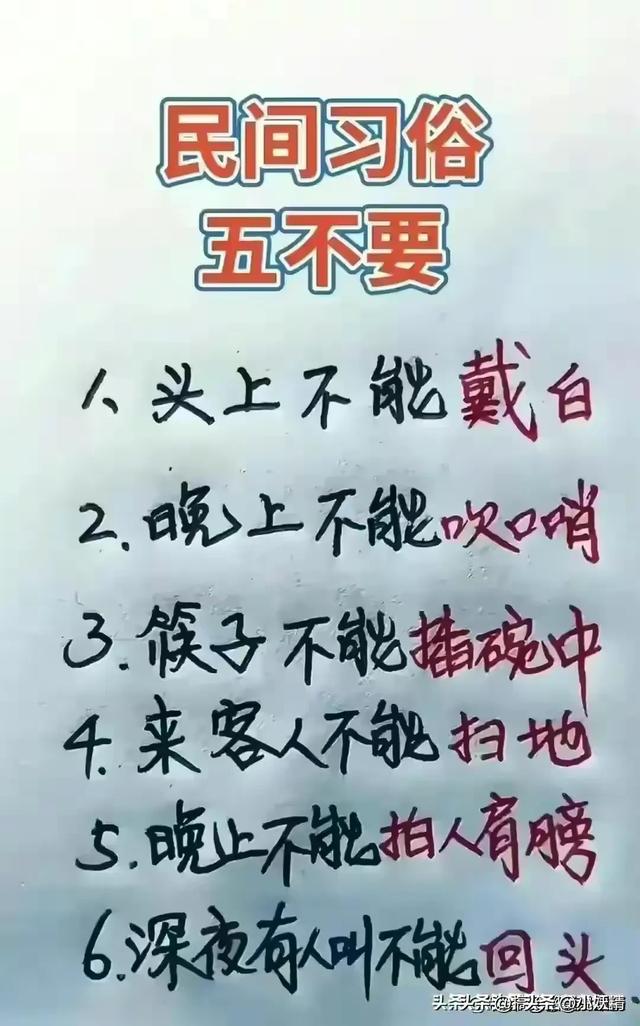 民间习俗
五不要
1、头上不能戴白
2.晚上不能吹口哨
3.筷子不能插碗中
4.来客人不能扫地
5.晚上不能拍人肩膀
6.深夜有人叫不能回头